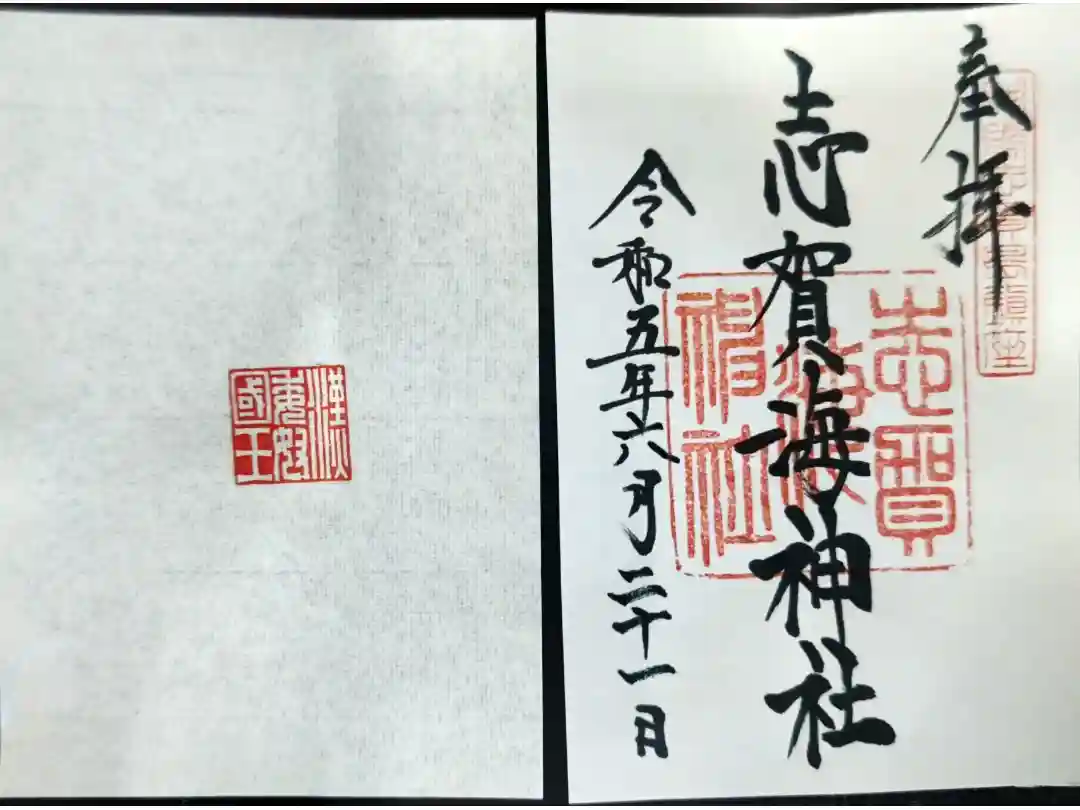 奉拝
志賀海神社
令和五年六月二十一日
志賀
海
神社
漢
委奴
國王